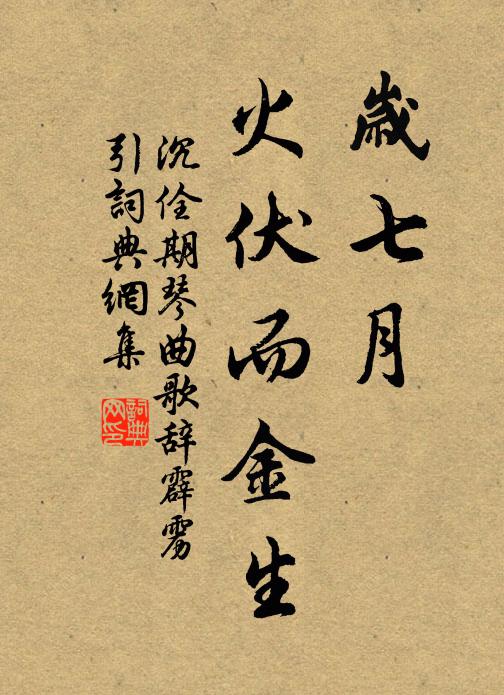 歲七月
火伏而金生
沉佺期琴曲歌辞霹雳
引詞典網集
詞典
网印